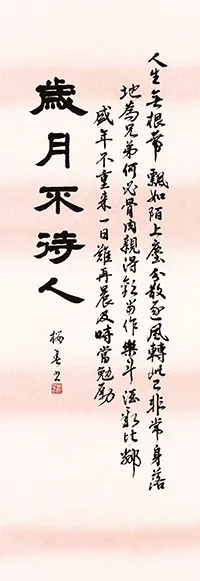 人生無根蒂飄如陌上塵分散逐風轉此已非常身落
地為兄弟何必骨肉親得歡當作樂斗酒聚比鄰
盛年不重來一日難再晨及時當勉勵
歲月不待人